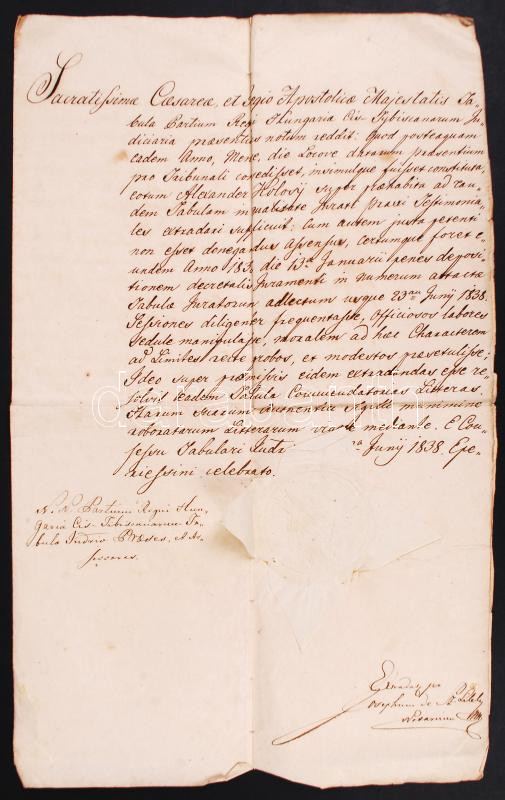 Sacratissimæ Cæsareæ, et Regio Apostolicæ Majestatis Ta-
bula Partium Regni Hungaria Cis-Tybiscanarum Ju-
diciaria præsentius notum reddit: Quod posteaquam
eadem Anno, Mense, die Locove datarum præsentium
pro Tribunali consedisset, insimulque fuisset constituta,
eotum Alexander Holosy super præhabita ad ean-
dem Tabulam in qualitate Jurati Praxi Testimonia-
les extradari supplicuit; Cum autem justa petenti
non esset denegandus assensus, certumque foret e-
undem Anno 183. die 13a Januarii penes deposi-
tionem decretalis Juramenti in numerum attactæ
Tabulæ Juratorum adlectum usque 23am Junÿ 1838.
Sessiones diligener frequentasse, officiosos labores
sedule manipulasse, moralem ad hæc Characterem
ad Limites recte probos, et modestos prœsetulisse;
Ideo super præmissis eidem extradandas esse re-
solvit eadem Tabula Commendatorias Litteras.
Harum Suarum Authentico Sigilli munimine
roboratarum Litterarum vigore mediante. E Con-
sessu Tabulari Judi ra Junÿ 1838. Epe-
riessini celebrato.
N. N. Partium Regni Hun-
garia Cis-Tibiscanarum Ta-
bula Judria Præses, et As-
sessores.
Extradat. per
Josephum de
Notarium